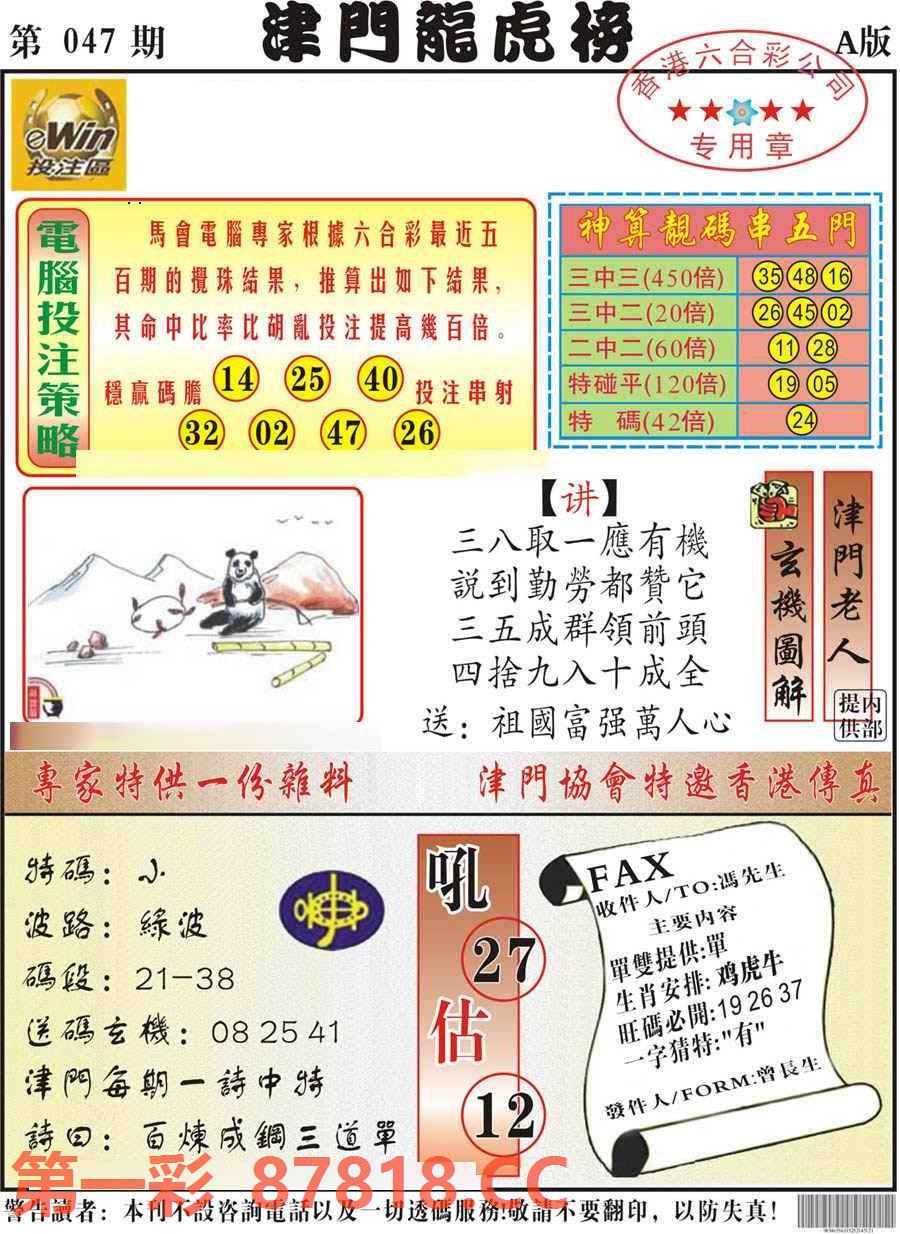 第 047 期
津門龍虎榜
A版
香港六合彩公司
专用章
eWin
投注區
電腦投注策略
馬會電腦專家根據六合彩最近五
百期的攪珠結果，推算出如下結果，
其命中比率比胡亂投注提高幾百倍。
穩贏碼膽 14 25 40 投注串射
32 02 47 26
神算靚碼串五門
三中三(450倍) 35 48 16
三中二(20倍) 26 45 02
二中二(60倍) 11 28
特碰平(120倍) 19 05
特 碼(42倍) 24
【讲】
三八取一應有機
説到勤勞都贊它
三五成群領前頭
四捨九入十成全
送：祖國富强萬人心
玄機圖解
津門老人
内部提供
專家特供一份雜料
津門協會特邀香港傳真
特碼：小
波路：綠波
碼段：21-38
送碼玄機：08 25 41
津門每期一詩中特
詩曰：百煉成鋼三道單
吼
27
估
12
FAX
收件人/TO:馮先生
主要内容
單雙提供:單
生肖安排:鸡虎牛
旺碼必開:19 26 37
一字猜特:"有"
發件人/FORM:曾長生
第一彩 87818.CC
警告讀者：本刊不設咨詢電話以及一切透碼服務!敬請不要翻印，以防失真!